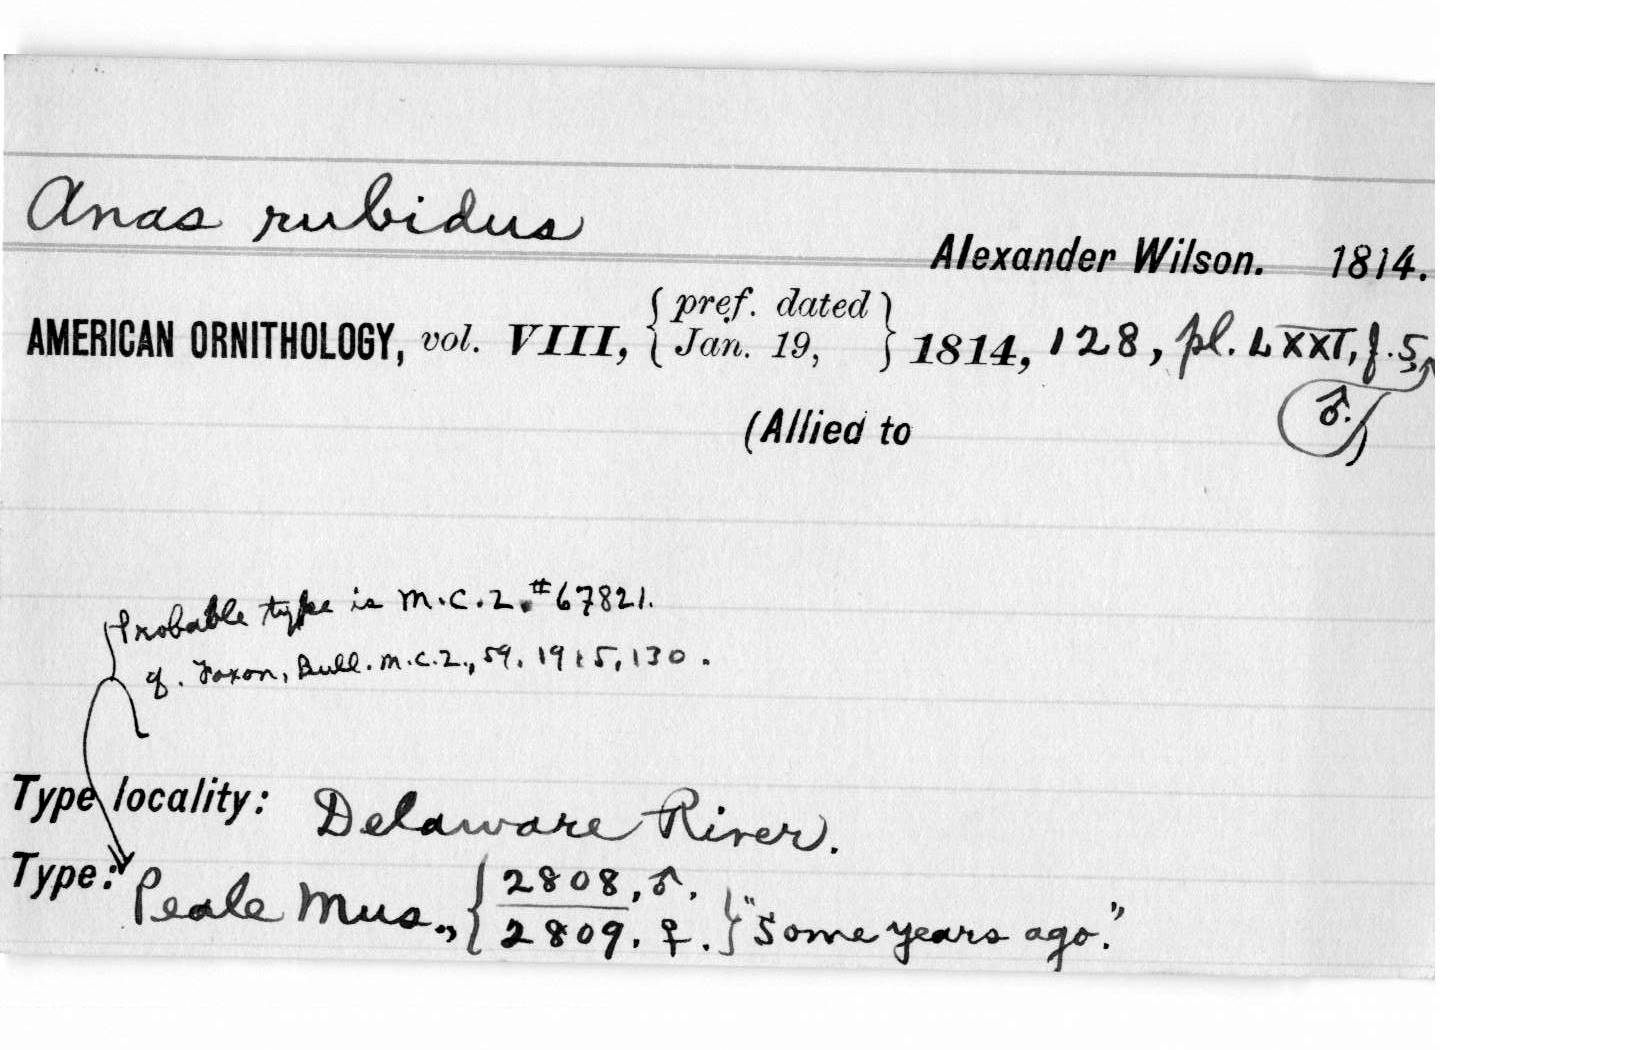 Anas rubidus
Alexander Wilson. 1814.
AMERICAN ORNITHOLOGY, vol. VIII, { pref. dated Jan. 19, } 1814, 128, pl. LXXI, f. 5,
♂.)
(Allied to
Probable type is M.C.Z. #67821.
cf. Faxon, Bull. M.C.Z., 59, 1915, 130.
Type locality: Delaware River.
Type: Peale Mus., { 2808, ♂. 2809. ♀. } "Some years ago."